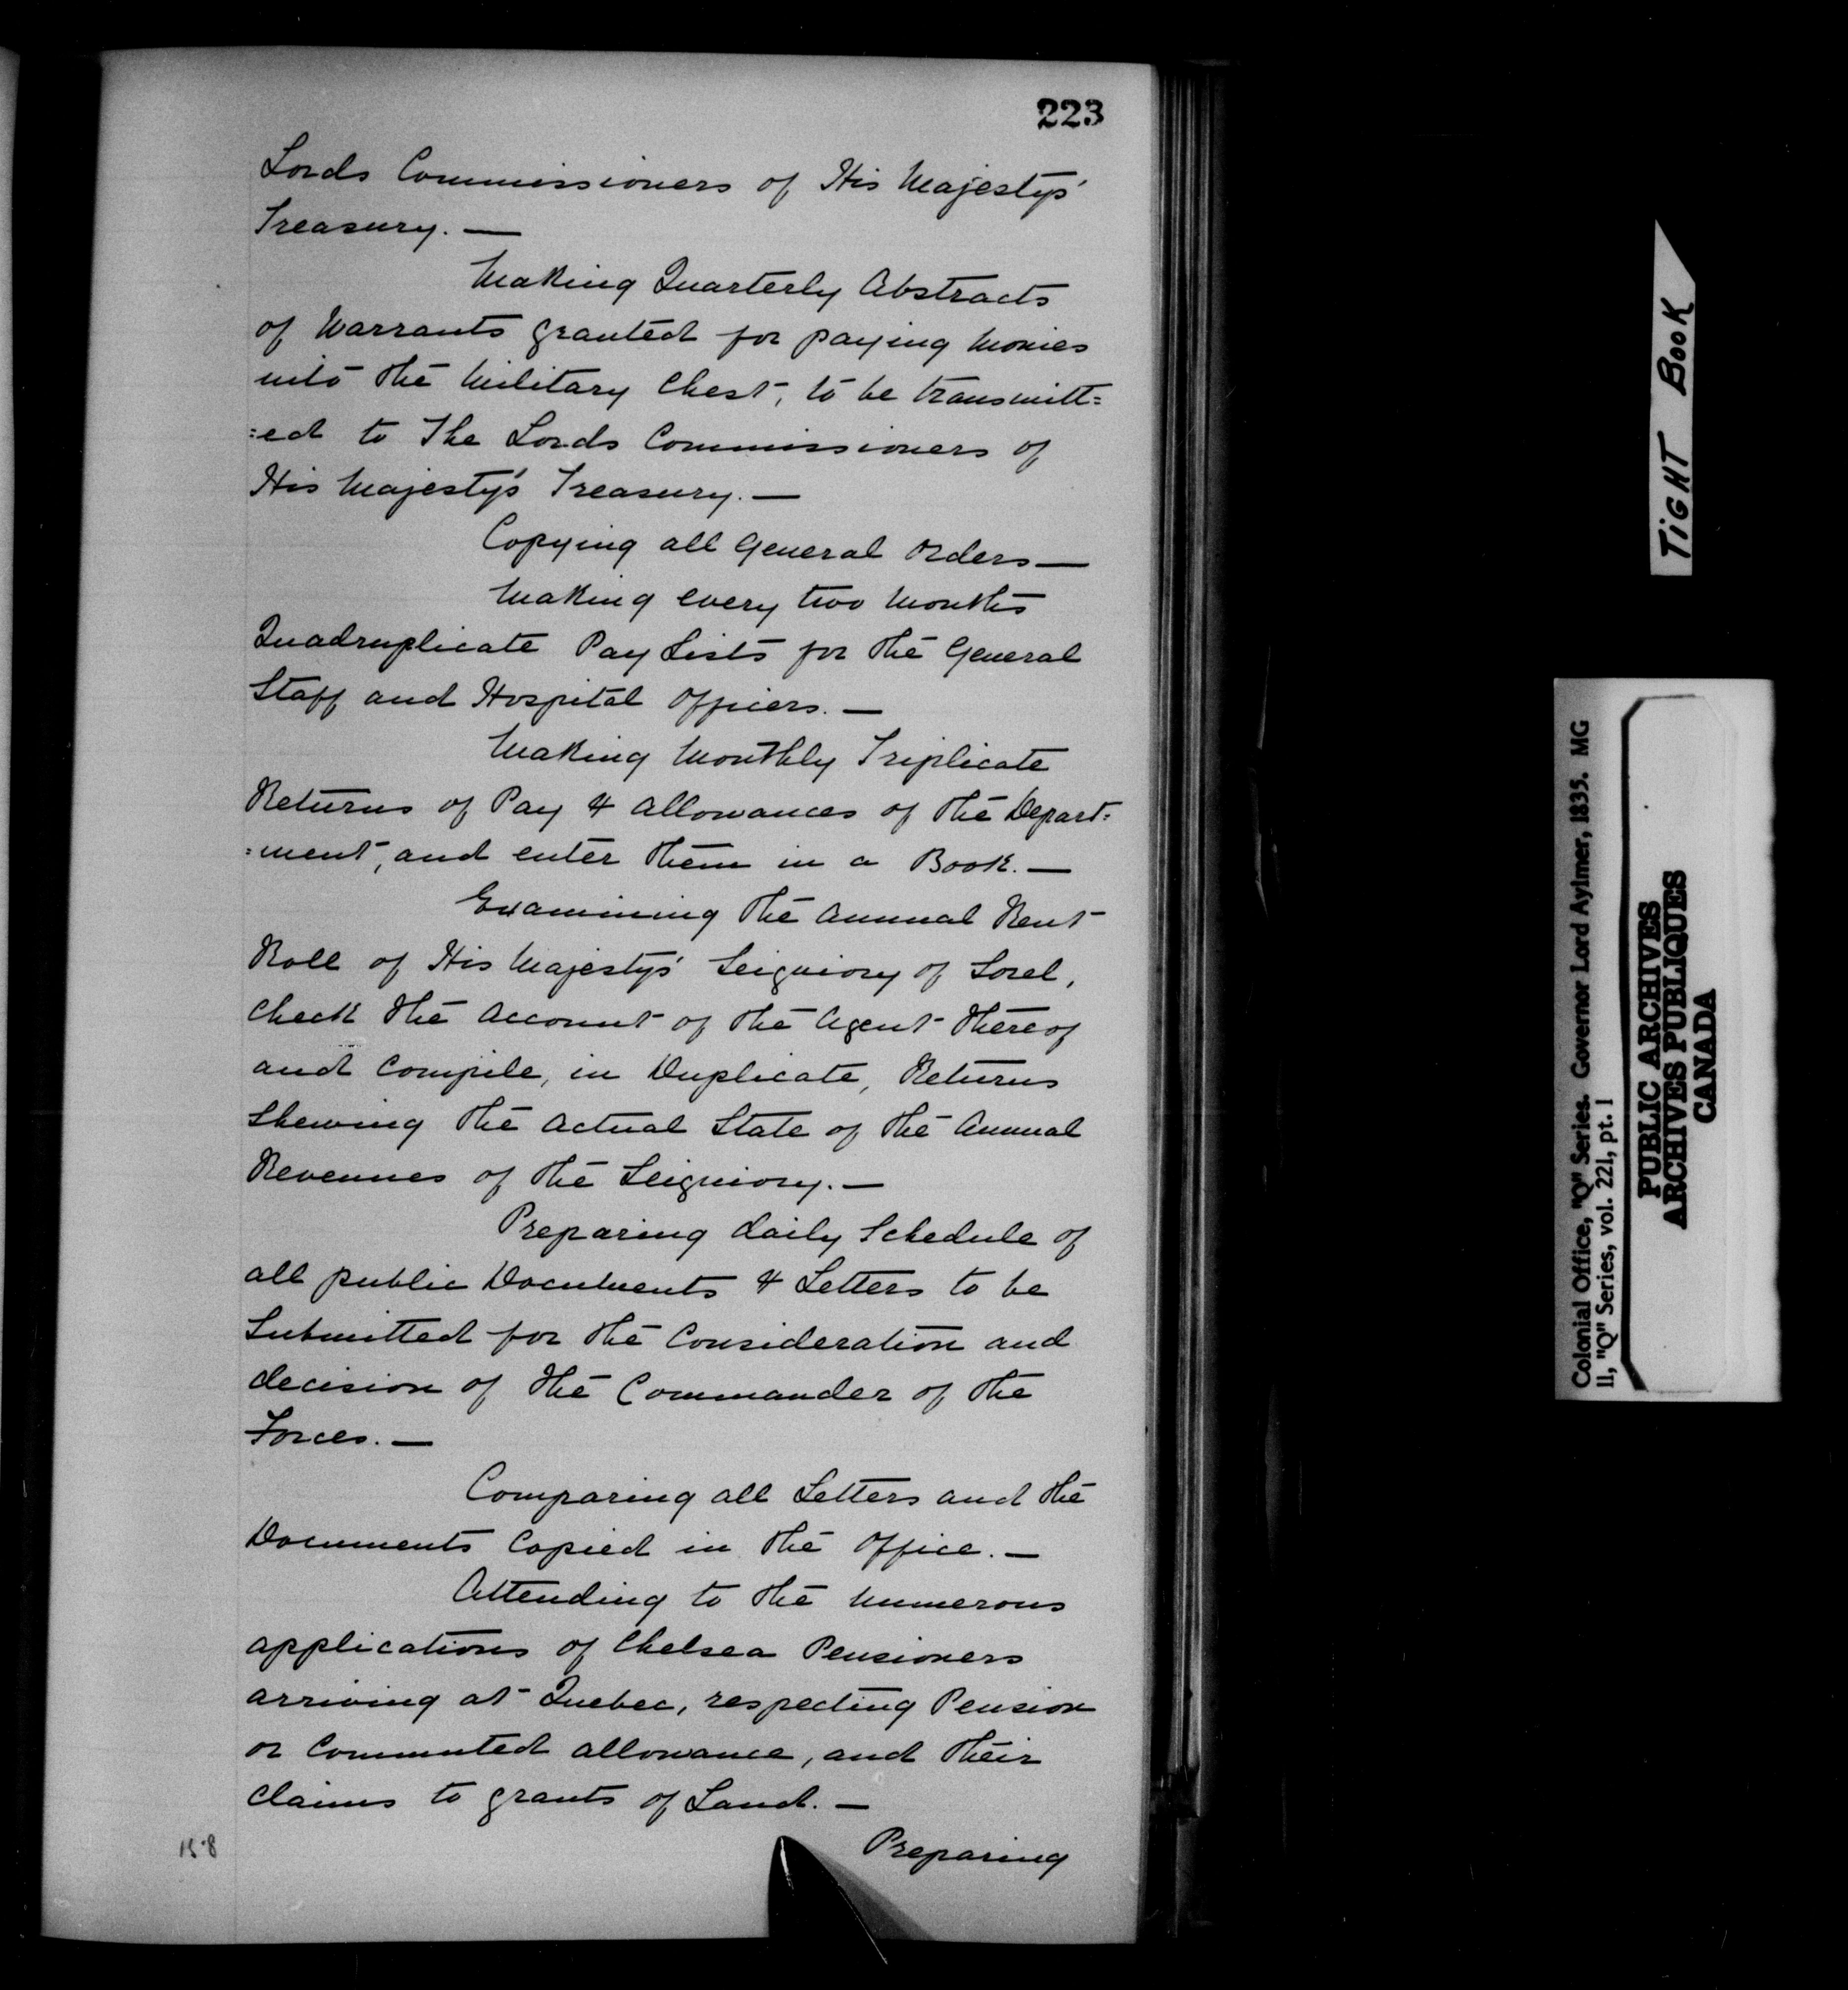 223
Lords Commissioners of His Majestys'
Treasury. —
Making Quarterly Abstracts
of Warrants granted for paying Monies
into the Military Chest, to be transmitt=
=ed to The Lords Commissioners of
His Majesty's Treasury. —
Copying all General Orders —
Making every two Months
Quadruplicate Pay Lists for the General
Staff and Hospital Officers. —
Making Monthly Triplicate
Returns of Pay & Allowances of the Depart=
=ment, and enter them in a Book. —
Examining the Annual Rent
Roll of His Majestys' Seigniory of Sorel,
Check the Account of the Agent thereof
and Compile, in Duplicate, Returns
Shewing the Actual State of the Annual
Revenues of the Seigniory. —
Preparing daily Schedule of
all public Documents & Letters to be
Submitted for the Consideration and
decision of the Commander of the
Forces. —
Comparing all Letters and the
Documents Copied in the Office. —
Attending to the Numerous
applications of Chelsea Pensioners
arriving at Quebec, respecting Pension
or Commuted allowance, and their
Claims to grants of Land. —
Preparing
158
TIGHT BOOK
Colonial Office, "Q" Series. Governor Lord Aylmer, 1835. MG
11, "Q" Series, vol. 221, pt. 1
PUBLIC ARCHIVES
ARCHIVES PUBLIQUES
CANADA